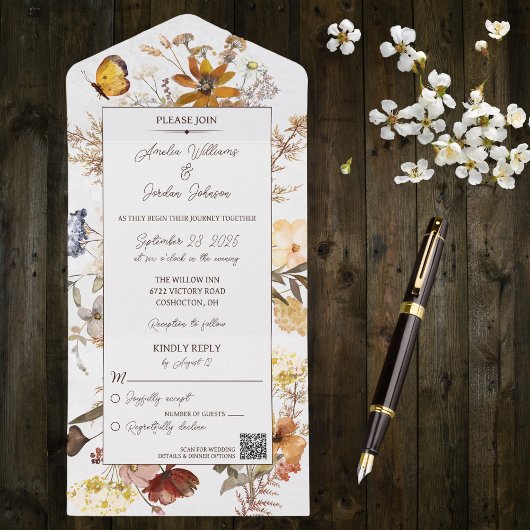 PLEASE JOIN
Amelia Williams
&
Jordan Johnson
AS THEY BEGIN THEIR JOURNEY TOGETHER
September 23, 2025
at six o'clock in the evening
THE WILLOW INN
6722 VICTORY ROAD
COSHOCTON, OH
Reception to follow
KINDLY REPLY
by August 12
M
Joyfully accept
NUMBER OF GUESTS
Regretfully decline
SCAN FOR WEDDING
DETAILS & DINNER OPTIONS